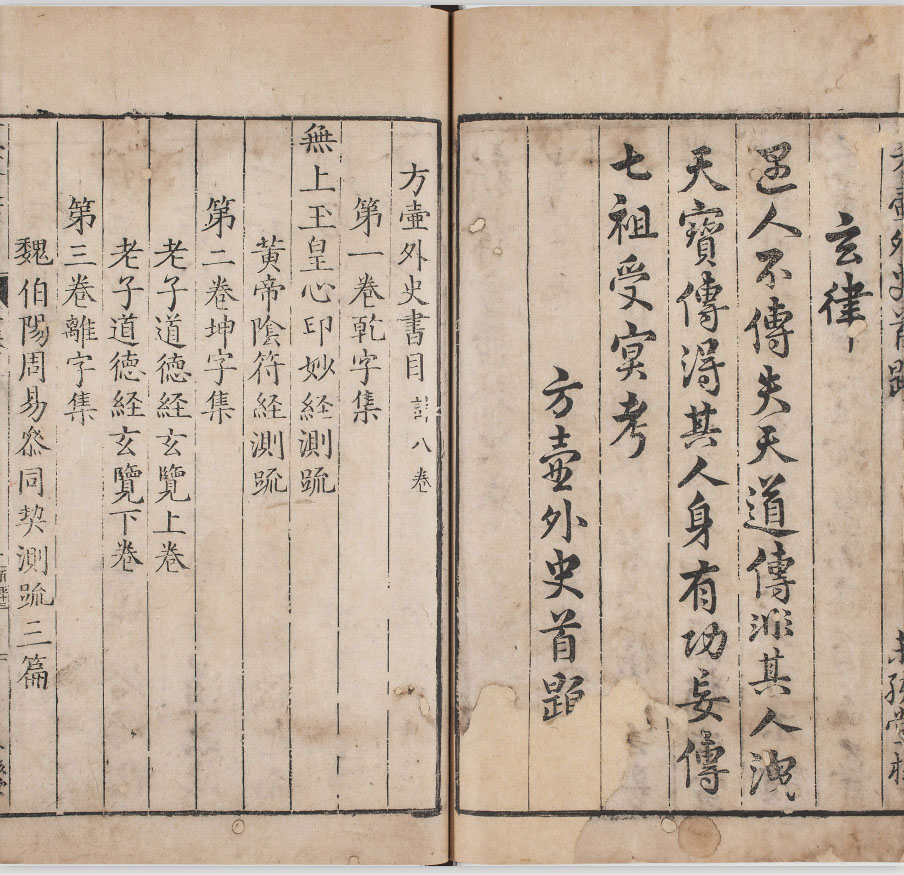 玄律
遇人不傳失天道傳非其人洩
天寶傳得其人身有功妄傳
七祖受冥考
方壺外史首
方壺外史書目 計八卷
第一卷乾字集
無上玉皇心印妙經測疏
黃帝陰符経測疏
第二卷坤字集
老子道德経玄覽上卷
老子道德経玄覽下卷
第三卷離字集
魏伯陽周易叅同契測疏三篇